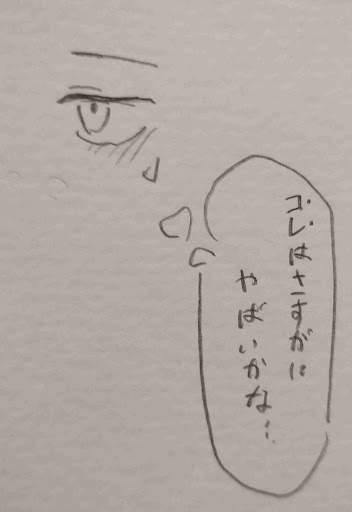 コレはさすがに
やばいかな…